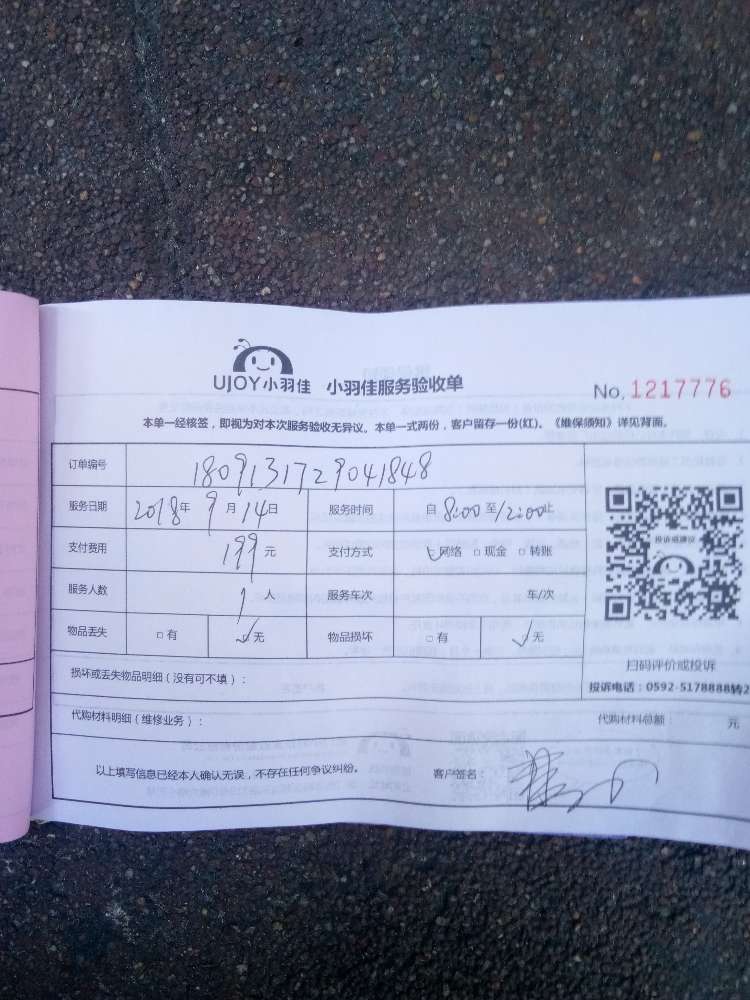 UJOY小羽佳 小羽佳服务验收单 No. 1217776
本单一经核签，即视为对本次服务验收无异议。本单一式两份，客户留存一份(红)。《维保须知》详见背面。
订单编号 1809131729041848
服务日期 2018年 9月 14日 服务时间 自 8:00 至 12:00 止
支付费用 199 元 支付方式 ☑网络 □现金 □转账
服务人数 1 人 服务车次 车/次
投诉或建议
物品丢失 □有 ☑无 物品损坏 □有 ☑无
扫码评价或投诉
损坏或丢失物品明细（没有可不填）： 投诉电话：0592-5178888转2
代购材料明细（维修业务）： 代购材料总额： 元
以上填写信息已经本人确认无误，不存在任何争议纠纷。 客户签名：